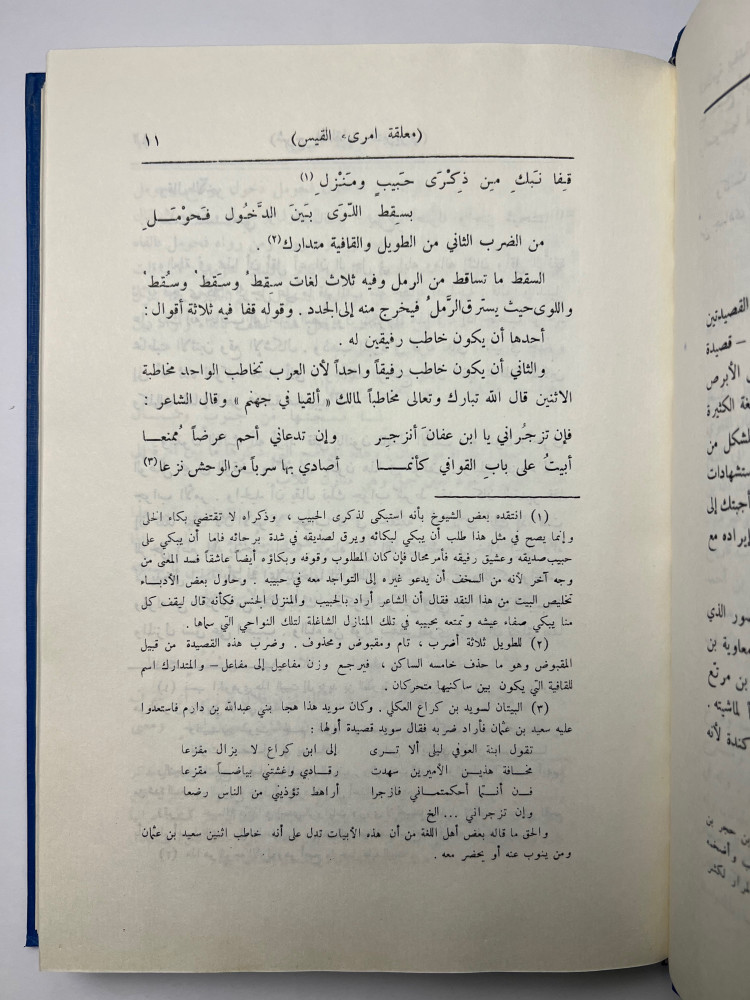 (معلقة امرىء القيس) ١١
قِفا نَبكِ مِن ذِكْرَى حَبيبٍ ومَنْزلِ (١)
بسِقط اللّوَى بَينَ الدَّخُول فَحَوْمَلِ
من الضرب الثاني من الطويل والقافية متدارك (٢) .
السقط ما تساقط من الرمل وفيه ثلاث لغات سِقطٌ وسَقطٌ وسُقطٌ
واللوى حيث يسترق الرَّملُ فيخرج منه إلى الجدد . وقوله قفا فيه ثلاثة أقوال :
أحدها أن يكون خاطب رفيقين له .
والثاني أن يكون خاطب رفيقاً واحداً لأن العرب تخاطب الواحد مخاطبة
الاثنين قال الله تبارك وتعالى مخاطباً لمالك « ألقيا في جهنم » وقال الشاعر :
فإن تزجُراني يا ابن عفانَ أنزجِر وإن تدعاني أحم عرضاً مُمنعا
أبيتُ على بابِ القوافي كأنما أصادي بها سرباً من الوحش نزعا (٣)
(١) انتقده بعض الشيوخ بأنه استبكى لذكرى الحبيب ، وذكراه لا تقتضي بكاء الخل
وإنما يصح في مثل هذا طلب أن يبكي لبكائه ويرق لصديقه في شدة برحائه فاما أن يبكي على
حبيب صديقه وعشيق رفيقه فأمر محال فإن كان المطلوب وقوفه وبكاؤه أيضاً عاشقاً فسد المعنى من
وجه آخر لأنه من السخف أن يدعو غيره إلى التواجد معه في حبيبه . وحاول بعض الأدباء
تخليص البيت من هذا النقد فقال أن الشاعر أراد بالحبيب والمنزل الجنس فكأنه قال ليقف كل
منا يبكي صفاء عيشه وتمتعه بحبيبه في تلك المنازل الشاغلة لتلك النواحي التي سماها .
(٢) للطويل ثلاثة أضرب ، تام ومقبوض ومحذوف . وضرب هذه القصيدة من قبيل
المقبوض وهو ما حذف خامسه الساكن ، فيرجع وزن مفاعيل إلى مفاعل – والمتدارك اسم
للقافية التي يكون بين ساكنيها متحركان .
(٣) البيتان لسويد بن كراع العكلي . وكان سويد هذا هجا بني عبدالله بن دارم فاستعدوا
عليه سعيد بن عثمان فأراد ضربه فقال سويد قصيدة أولها :
تقول ابنة العوفي ليلى ألا ترى إلى ابن كراع لا يزال مفزعا
مخافة هذين الأميرين سهدت رقادي وغشتني بياضاً مقزعا
فن أنتما أحكمتماني فازجرا أراهط تؤذيني من الناس رضعا
وإن تزجراني ... الخ
والحق ما قاله بعض أهل اللغة من أن هذه الأبيات تدل على أنه خاطب اثنين سعيد بن عثمان
ومن ينوب عنه أو يحضر معه .
القصيدتين
– قصيدة
الأبرص
الكثيرة
لشكل من
ستشهادات
أجبتك إلى
إيراده مع
الذي
معاوية بن
بن مرتع
لماشيته .
كندة لأنه